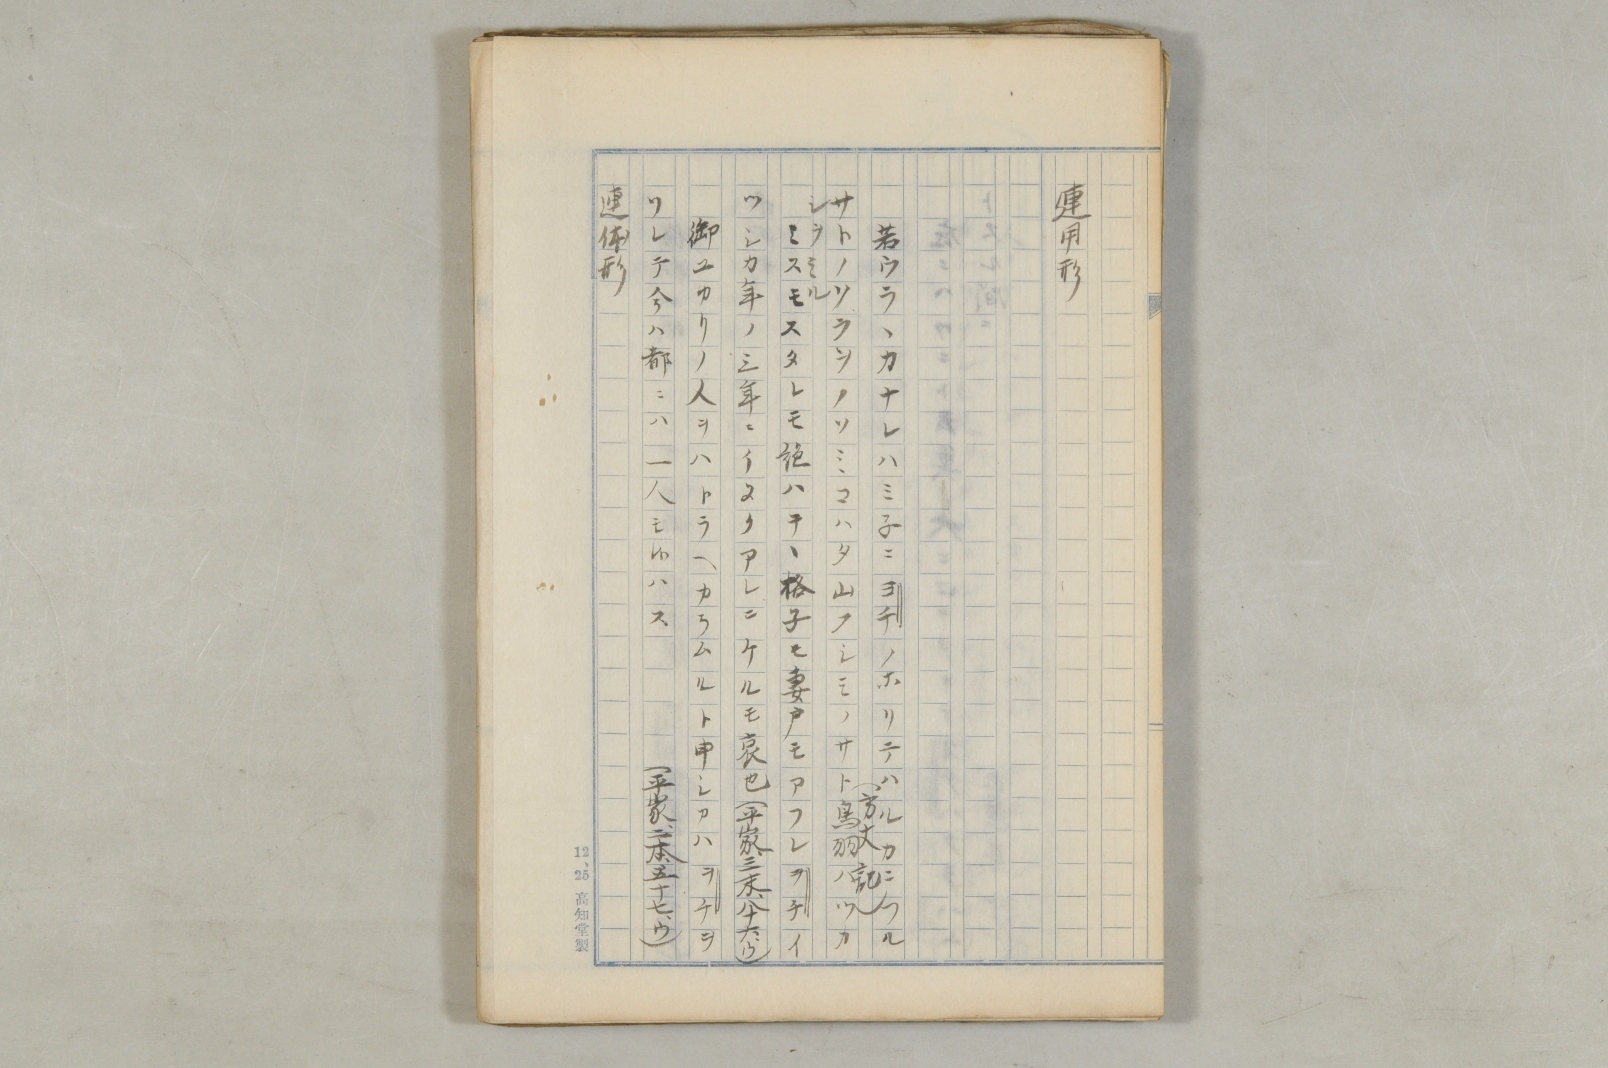 連用形
若ウラヽカナレハミ子ニヨチノホリテハルカニフル
サトノソラヲノソミコハタ山フシミノサト鳥羽ハツカ
シヲミル
(方丈記)
ミスモスタレモ絶ハテヽ格子モ妻戸モアフレヲチイ
ツシカ年ノ三年ニイタクアレニケルモ哀也(平家、三末、八十六、ウ)
御ユカリノ人ヲハトラヘカラムルト申シカハヲチヲ
リレテ今ハ都ニハ一人モ候ハス
(平家、二本、五十七、ウ)
連体形
12、25 高知堂製